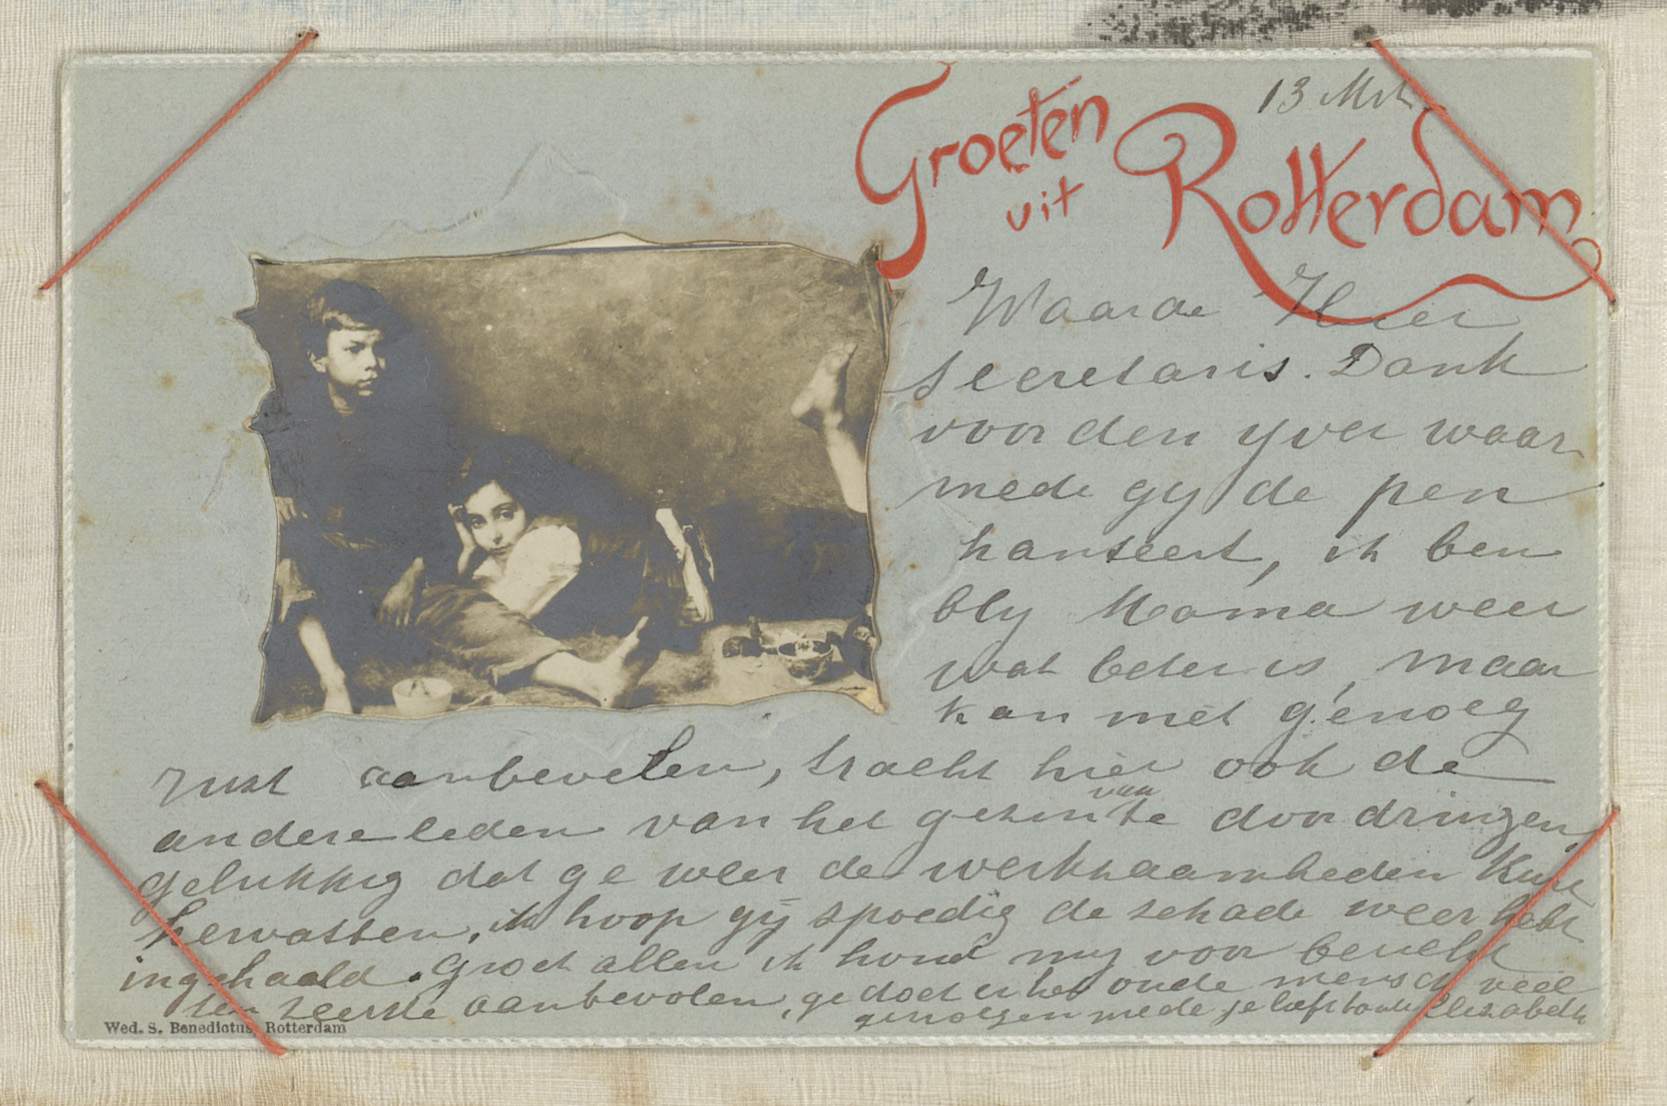 13 Mrt.
Groeten
uit Rotterdam
Waarde Heer
secretaris. Dank
voor den yver waar
mede gy de pen
hanteert, ik ben
bly Mama weer
wat beter is, maar
kan niet genoeg
rust aanbevelen, tracht hier ook de
andere leden van het gezin van te doordringen,
gelukkig dat ge weer de werkzaamheden kunt
hervatten, ik hoop gij spoedig de schade weer hebt
ingehaald. Groet allen ik houd my voor bericht
ten zeerste aanbevolen, ge doet er het oude mensch veel
genoegen mede je liefh. tante Elisabeth
Wed. S. Benedictus, Rotterdam